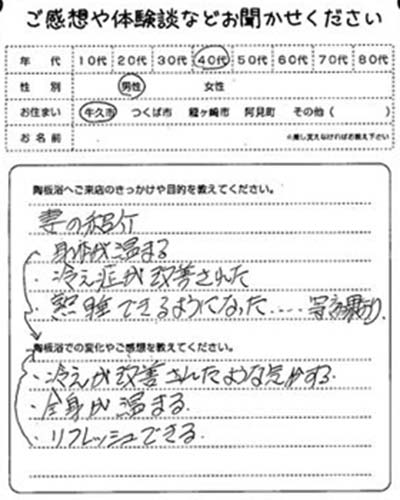 ご感想や体験談などお聞かせください
年代 10代 20代 30代 40代 50代 60代 70代 80代
性別 男性 女性
お住まい 牛久市 つくば市 龍ヶ崎市 阿見町 その他( )
お名前 ※差し支えなければお教え下さい
陶板浴へご来店のきっかけや目的を教えてください。
妻の紹介
身体が温まる
・冷え症が改善された
・熟睡できるようになった.....
陶板浴での変化やご感想を教えてください。
・冷えが改善されたような気がする.
・全身が温まる.
・リフレッシュできる.